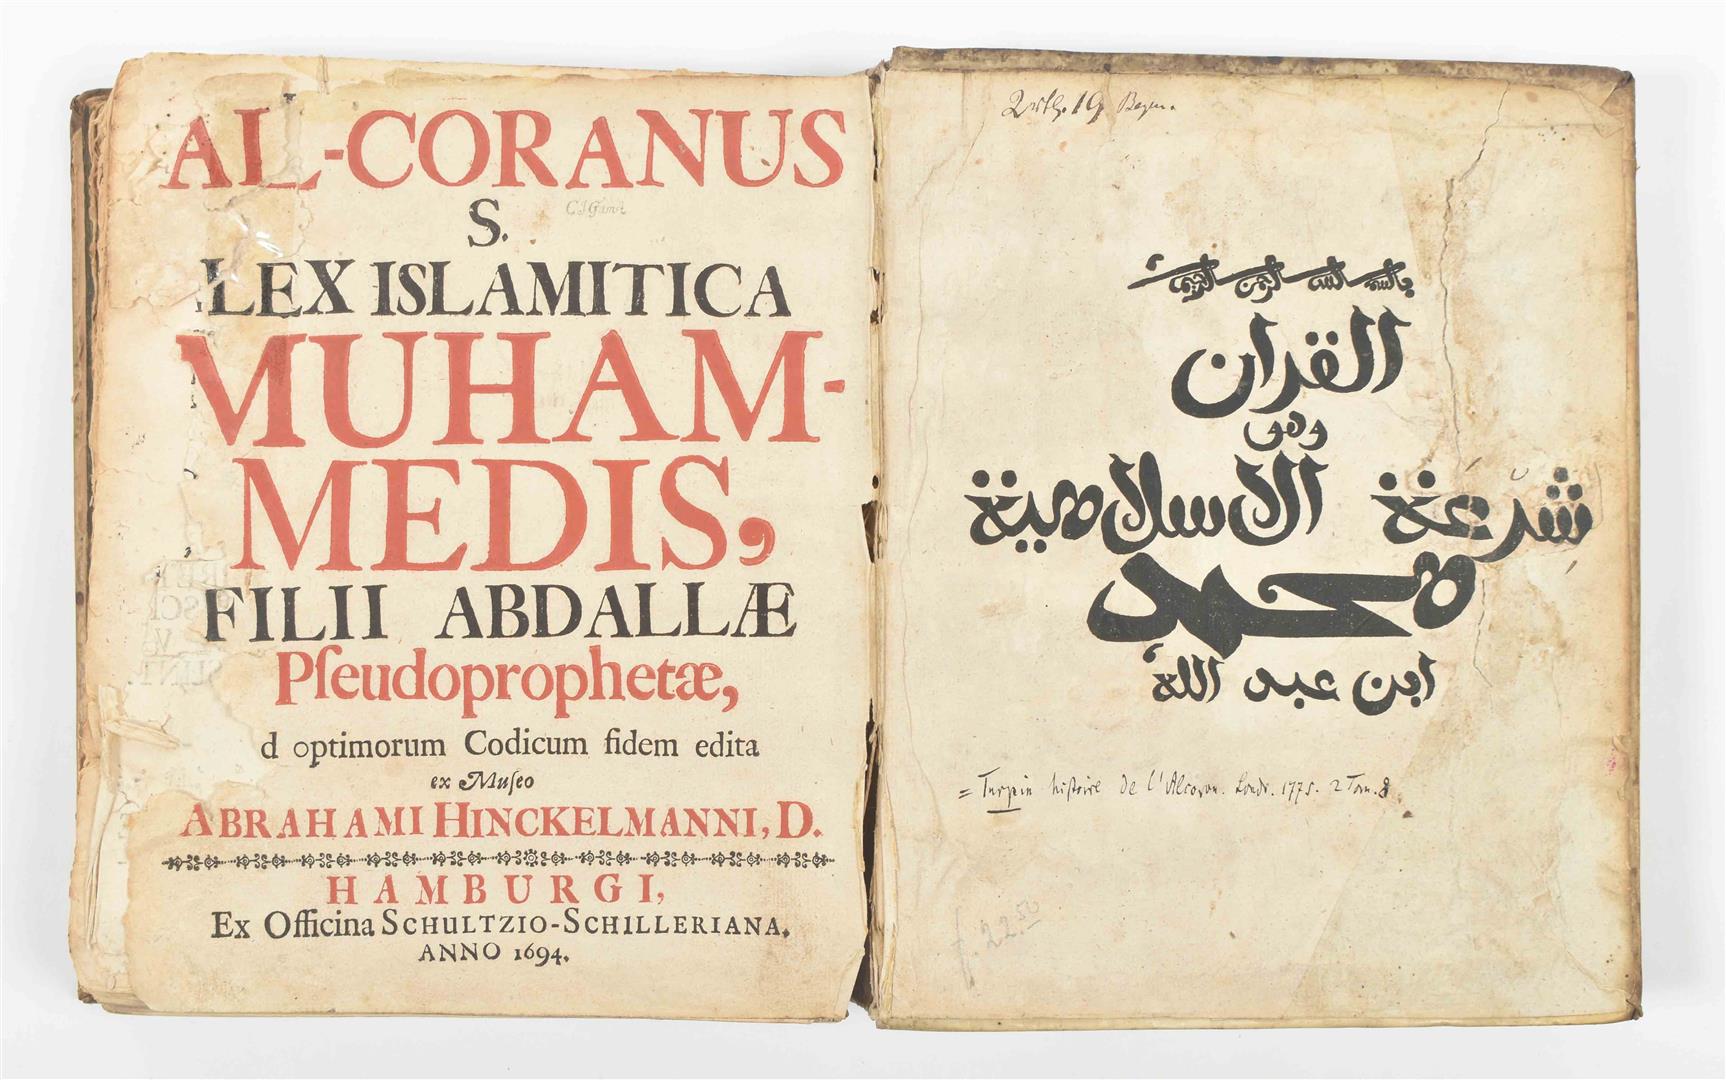 AL-CORANUS
S.
LEX ISLAMITICA
MUHAM-
MEDIS,
FILII ABDALLÆ
Pſeudoprophetæ,
d optimorum Codicum fidem edita
ex Muſeo
ABRAHAMI HINCKELMANNI, D.
HAMBURGI,
Ex Officina SCHULTZIO-SCHILLERIANA,
ANNO 1694.
القران
وهو
شرعة الاسلامية
محمد
ابن عبد الله
= Turpin histoire de l'Alcoran. Londr. 1775. 2 Tom. 8
f. 22.50